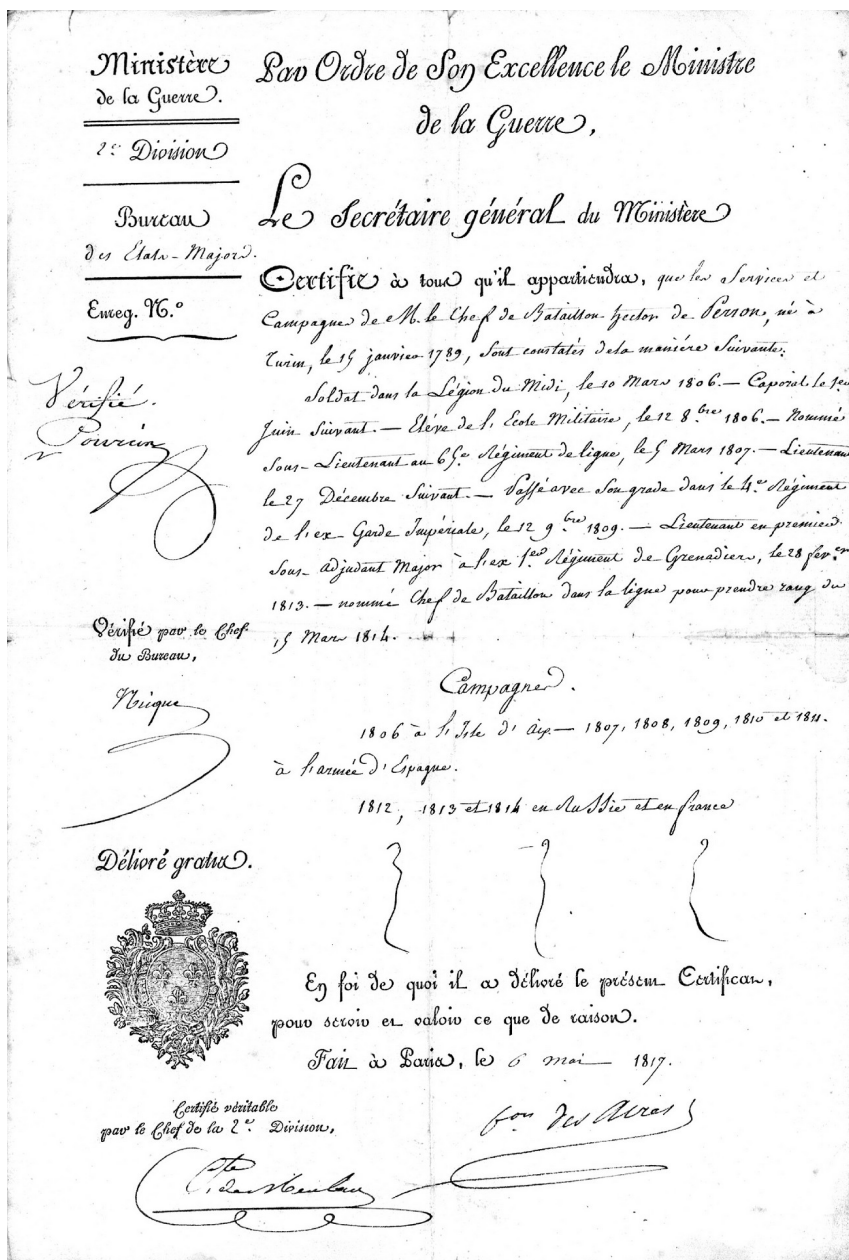 Ministère
de la Guerre.
2.e Division
Bureau
des Etats-Majors.
Enreg. N.o
Vérifié.
Vérifié par le Chef
du Bureau,
Délivré gratis.
Par Ordre de Son Excellence le Ministre
de la Guerre,
Le Secrétaire général du Ministère
Certifie à tous qu'il appartiendra, que les Services et
Campagnes de M. le Chef de Bataillon hector de Perron, né à
Turin, le 15 janvier 1789, sont constatés de la manière Suivante.
Soldat dans la Légion du Midi, le 10 Mars 1806. — Caporal le 1er
Juin Suivant. — Elève de l'Ecole Militaire, le 12 8.bre 1806. — Nommé
Sous-Lieutenant au 65.e Régiment de ligne, le 5 Mars 1807. — Lieutenant
le 27 Décembre Suivant. — Passé avec Son grade dans le 4.e Régiment
de l'ex Garde Impériale, le 12 9.bre 1809. — Lieutenant en premier
Sous-Adjudant Major à l'ex 1.er Régiment de Grenadiers, le 28 fev.er
1813. — nommé Chef de Bataillon dans la ligne pour prendre rang du
15 Mars 1814.
Campagnes.
1806 à l'Isle d'Aix — 1807, 1808, 1809, 1810 et 1811.
à l'armée d'Espagne.
1812, 1813 et 1814 en Russie et en france
En foi de quoi il a délivré le présent Certificat,
pour servir et valoir ce que de raison.
Fait à Paris, le 6 mai 1817.
Certifié véritable
par le Chef de la 2.e Division,